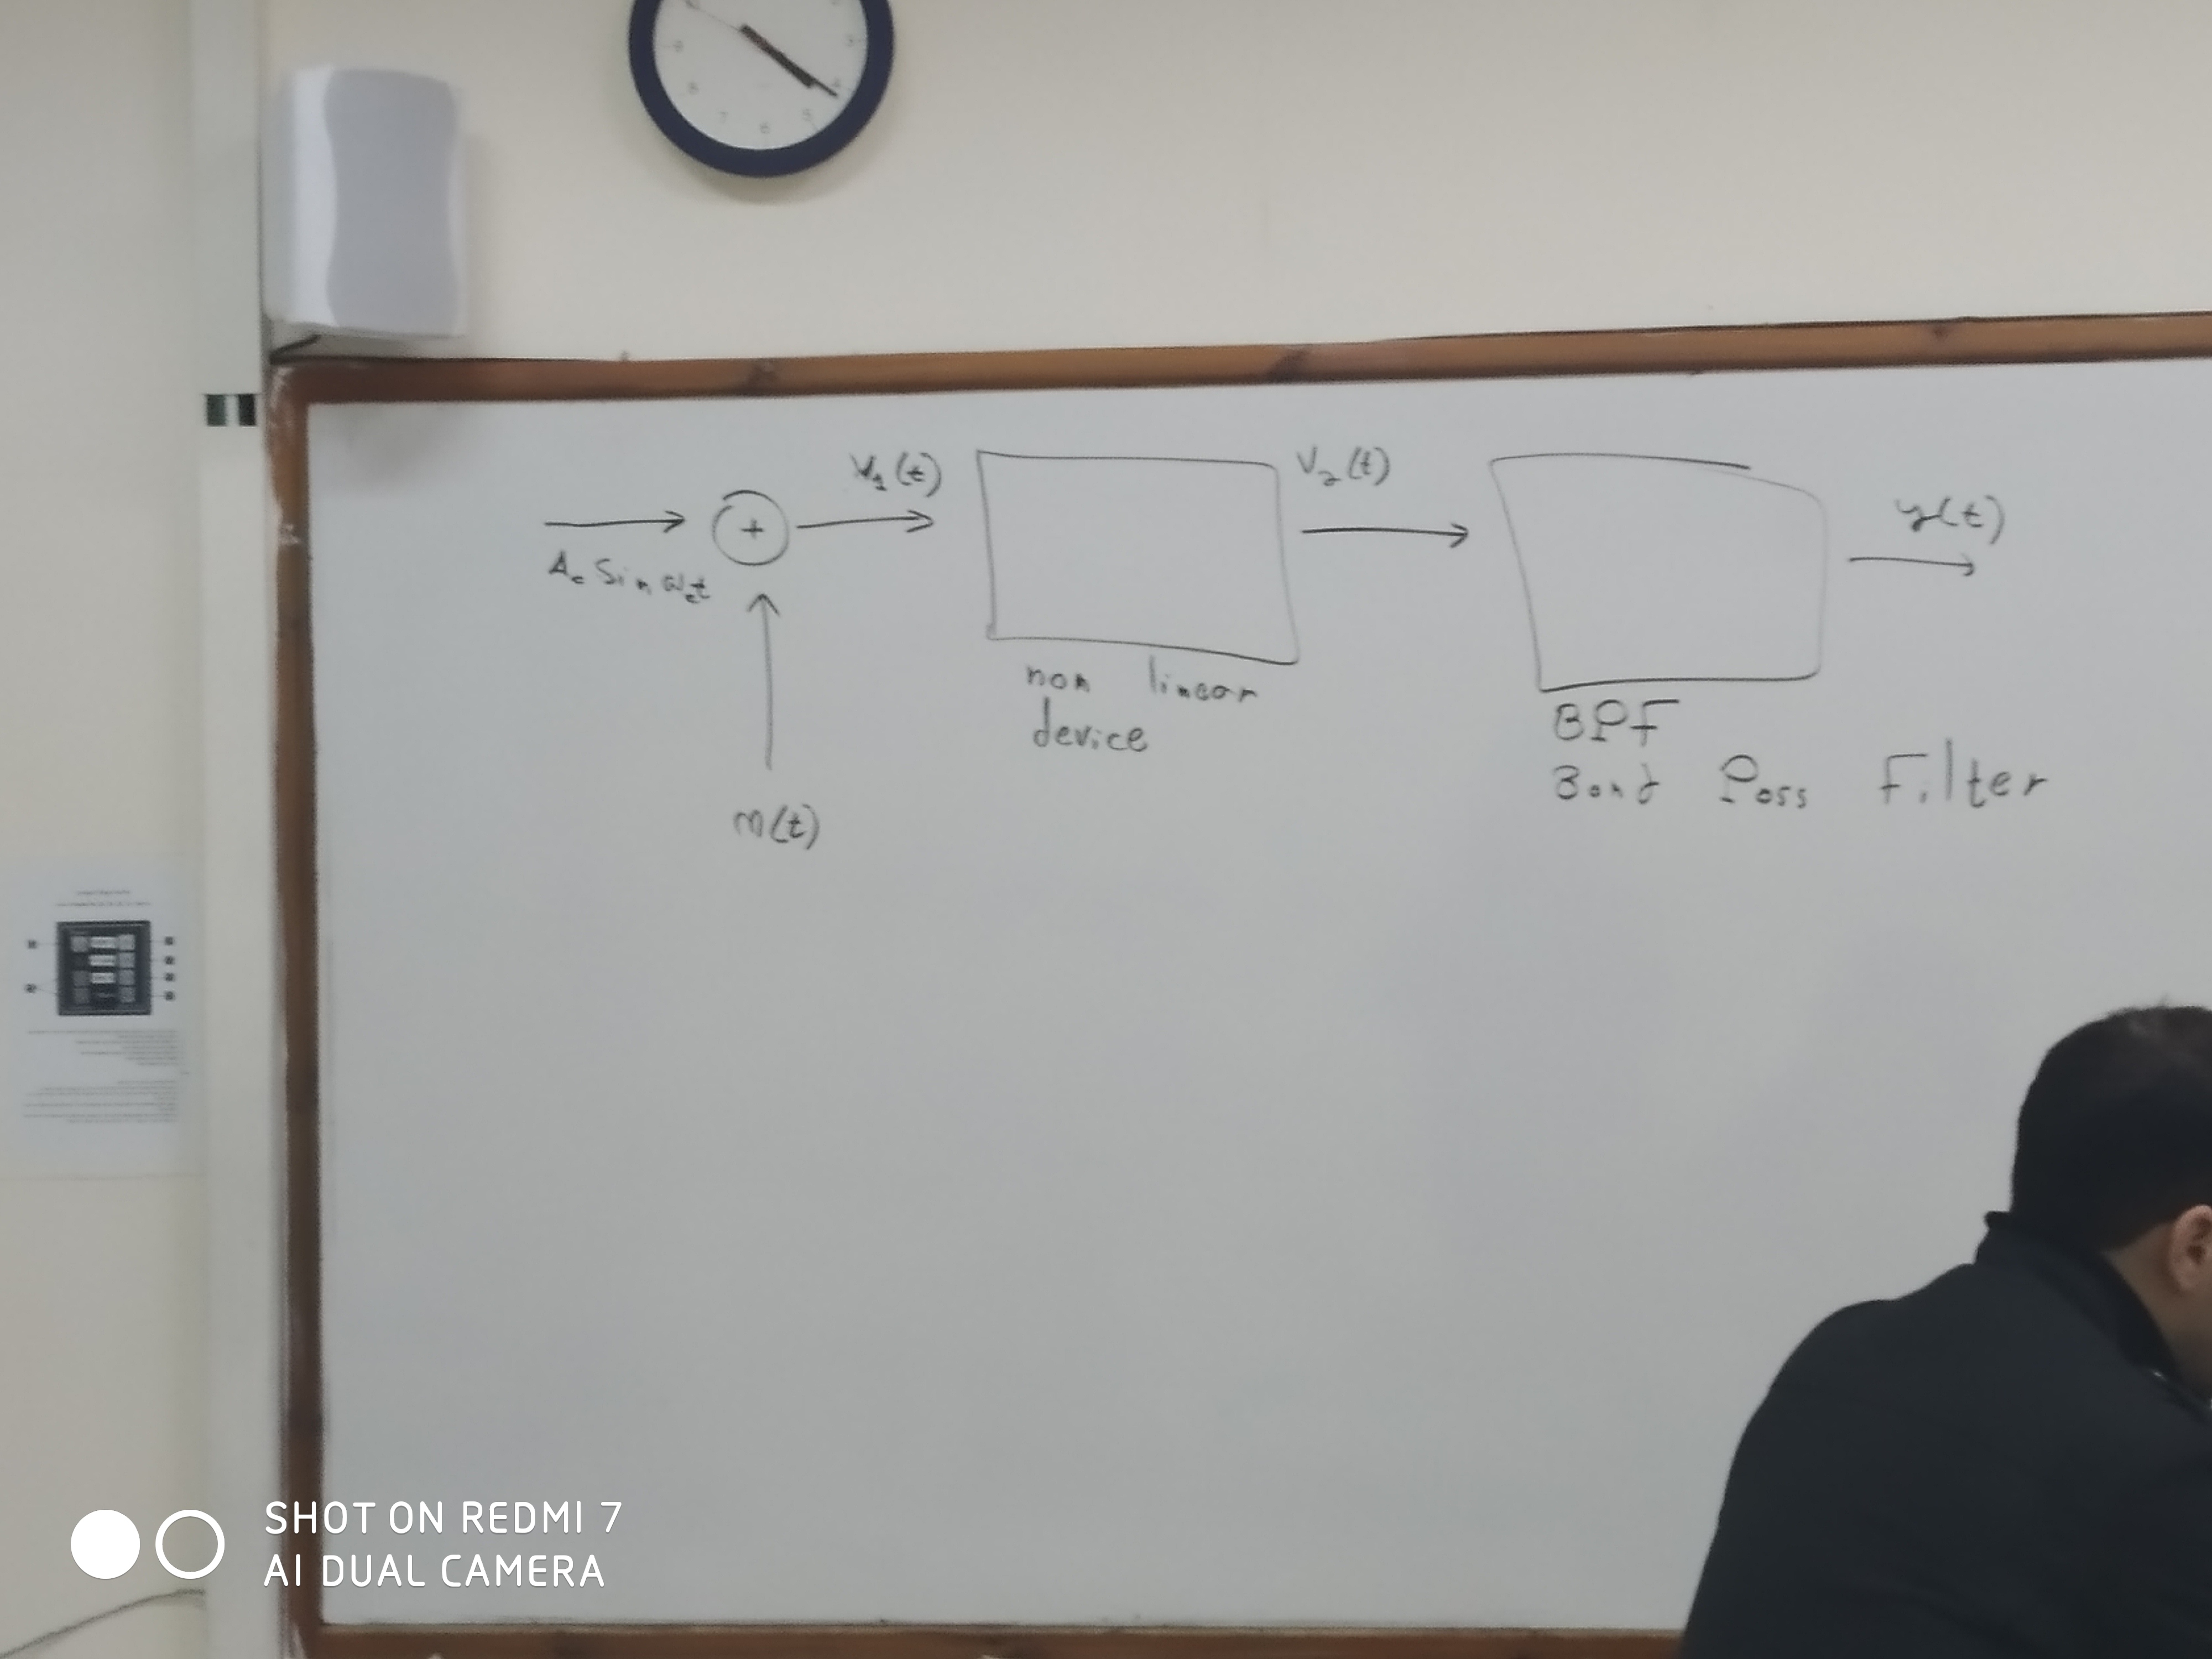 V₁(t)
V₂(t)
y(t)
+
A꜀ Sin ω꜀t
non linear
device
m(t)
BPF
Band Pass Filter
3
4
5
6
7
8
9
SHOT ON REDMI 7
AI DUAL CAMERA